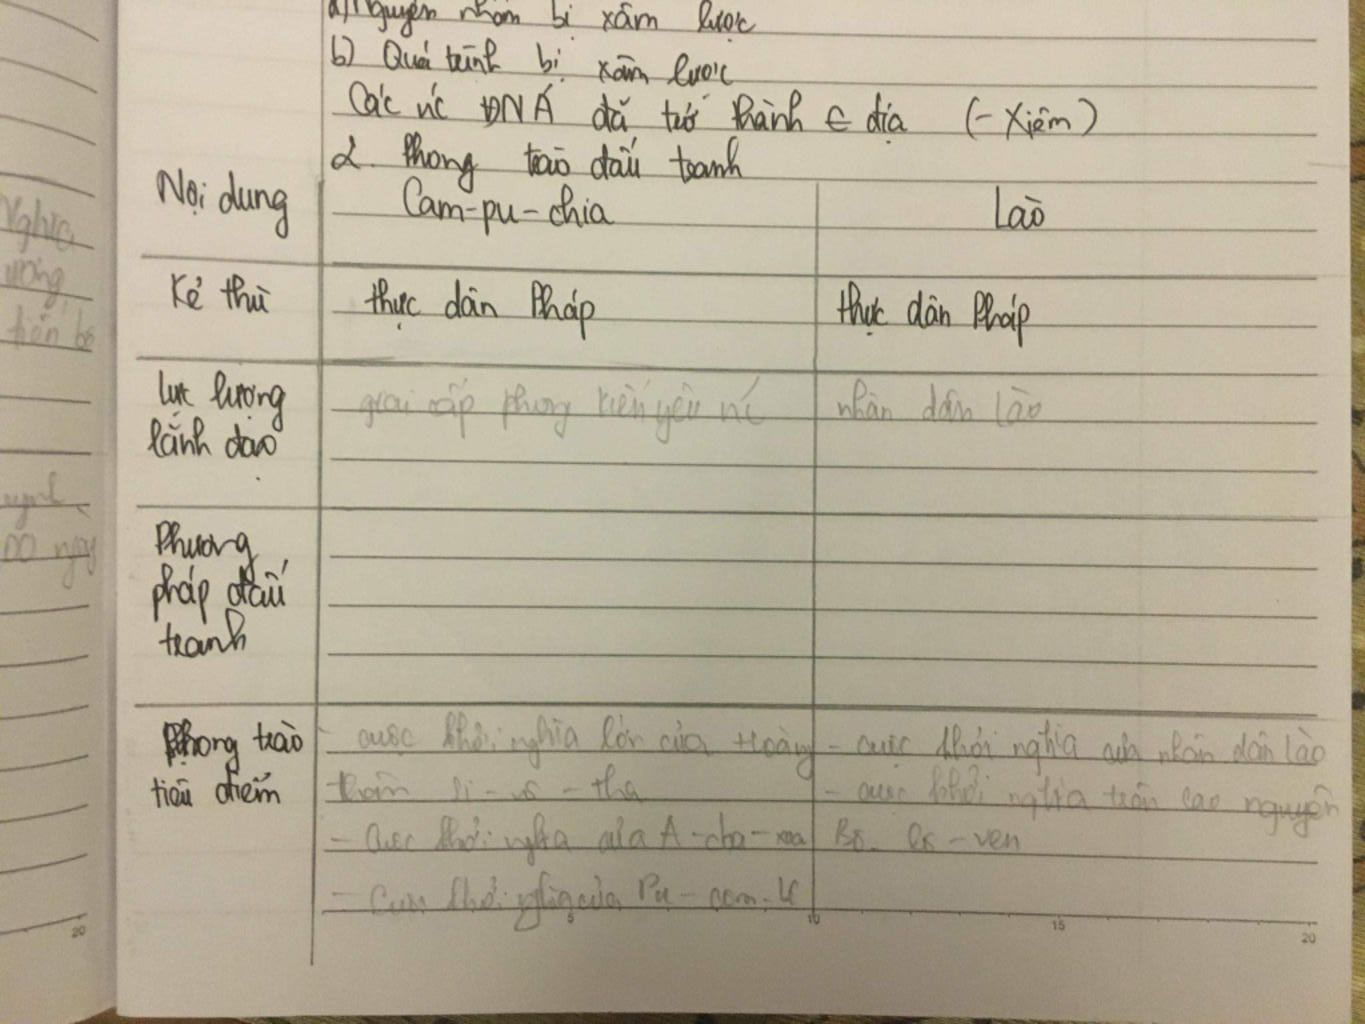 a) Nguyên nhân bị xâm lược
b) Quá trình bị xâm lược
Các nc ĐNÁ đã trở thành € địa (- Xiêm)
2. Phong trào đấu tranh
Nội dung Cam-pu-chia Lào
Kẻ thù thực dân Pháp thực dân Pháp
Lực lượng giai cấp phong kiến yêu nc nhân dân Lào
lãnh đạo
Phương
pháp đấu
tranh
Phong trào - cuộc khởi nghĩa lớn của Hoàng - cuộc khởi nghĩa của nhân dân Lào
tiêu điểm thân Si-vô-tha - cuộc khởi nghĩa trên cao nguyên
- Cuộc khởi nghĩa của A-cha-xoa Bô-lô-ven
- Cuộc khởi nghĩa của Pu-com-
5 10 15 20
Nghĩa
tiến bộ
20